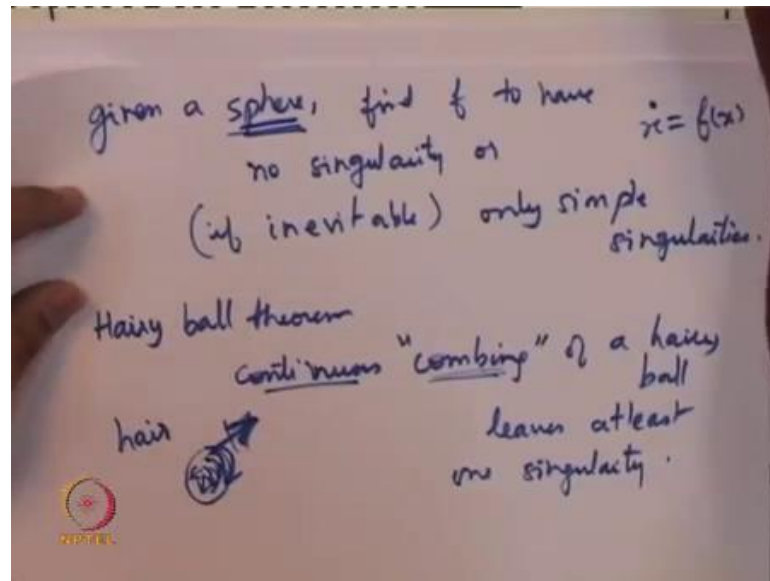 given a sphere, find f to have
ẋ = f(x)
no singularity or
(if inevitable) only simple
singularities.
Hairy ball theorem
continuous "combing" of a hairy
ball
hair
leaves atleast
one singularity.
NPTEL